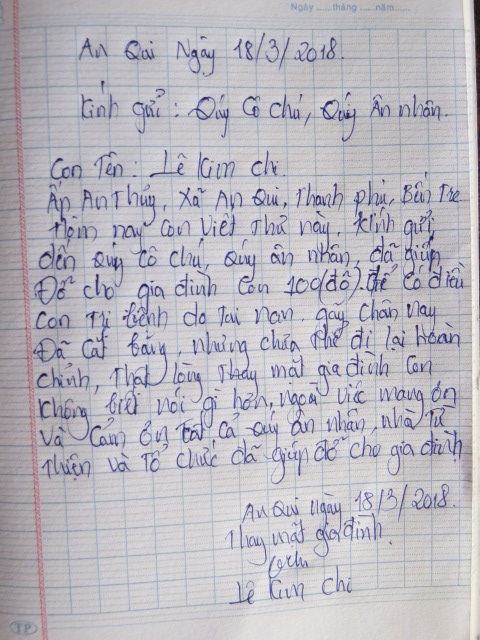 Ngày ......tháng ......năm......
An Qui Ngày 18/3/2018.
Kính gửi : Qúy Cô chú, Qúy Ân nhân.
Con Tên : Lê Kim Chi.
Ấp An Thủy, Xã An Qui, Thạnh phú, Bến Tre
Hôm nay Con Viết Thư này, Kính gửi
đến Qúy Cô chú, Qúy ân nhân, đã giúp
Đỡ cho gia đình Con 100(đô). Để Có điều
Con Trị bệnh do Tai nạn. gãy chân nay
Đã Cắt băng, nhưng chưa thể đi lại Hoàn
chỉnh, Thật lòng Thay mặt gia đình Con
Không biết nói gì hơn, ngoài việc mang ơn
Và Cảm ơn tất Cả quý ân nhân, nhà Từ
Thiện và Tổ chức đã giúp đỡ cho gia đình
An Qui ngày 18/3/2018.
Thay mặt gia đình.
Lê Kim Chi
TP